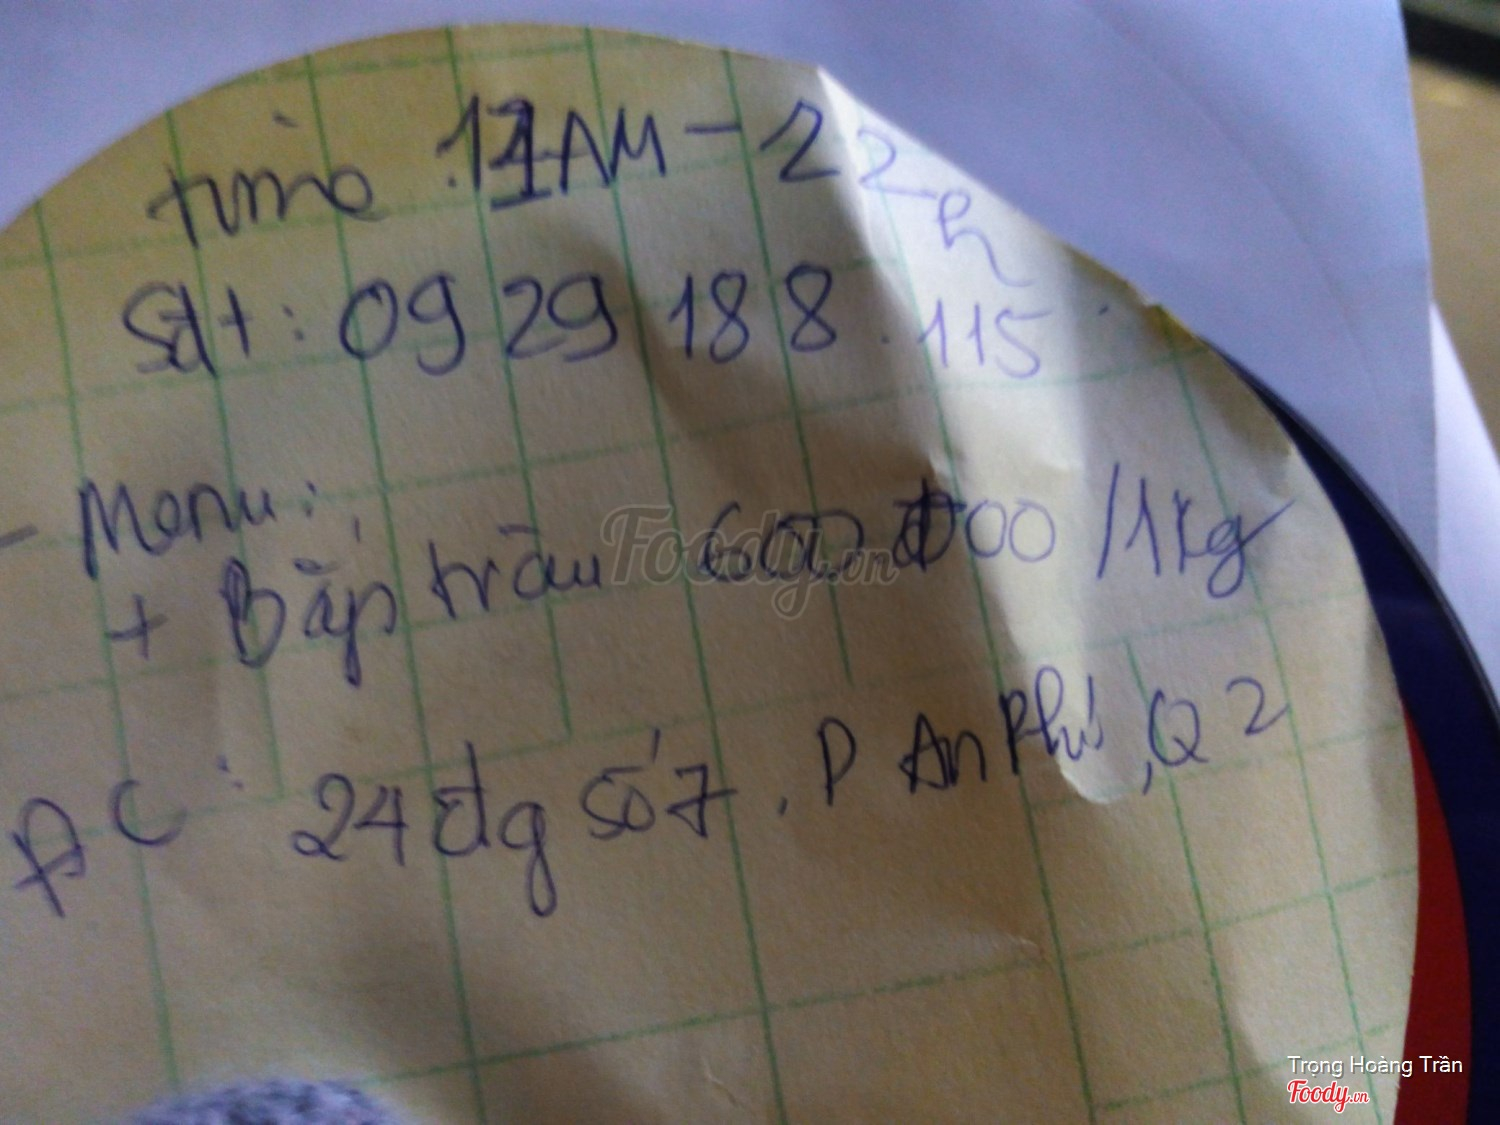 time 11AM - 22h
Sđt: 0929 188.115
- Menu:
+ Bắp trâu 600 000 /1kg
ĐC: 24 đg số 7, P An Phú, Q 2
Foody.vn
Trọng Hoàng Trần
Foody.vn